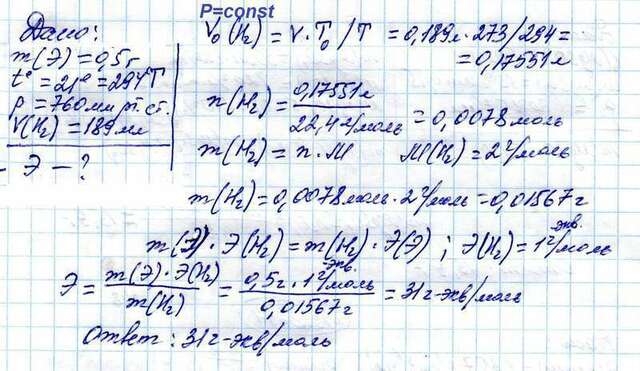 P=const
Дано:
m(Э) = 0,5г
t° = 21° = 294T
p = 760 мм рт. ст.
V(H₂) = 189 мл
Э – ?
V₀(H₂) = V · T₀ / T = 0,189л · 273/294 =
= 0,17551л
n(H₂) = 0,17551л / 22,4 л/моль = 0,0078 моль
m(H₂) = n · M M(H₂) = 2 г/моль
m(H₂) = 0,0078 моль · 2 г/моль = 0,01567 г
m(Э) · Э(H₂) = m(H₂) · Э(Э) ; Э(H₂) = 1 г-экв./моль
Э = m(Э) · Э(H₂) / m(H₂) = 0,5г · 1 г-экв./моль / 0,01567г = 31 г-экв/моль
Ответ : 31 г-экв/моль